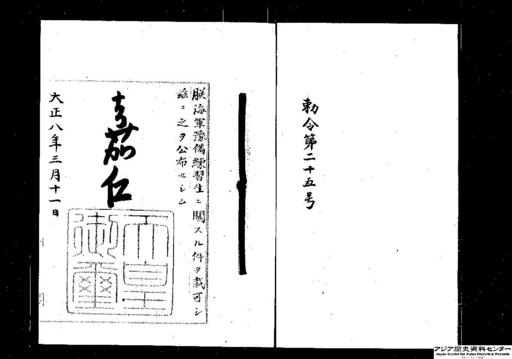 勅令第二十五号
朕海軍豫備練習生ニ關スル件ヲ裁可シ
茲ニ之ヲ公布セシム
嘉仁
天皇御璽
大正八年三月十一日
アジア歴史資料センター
Japan Center for Asian Historical Records